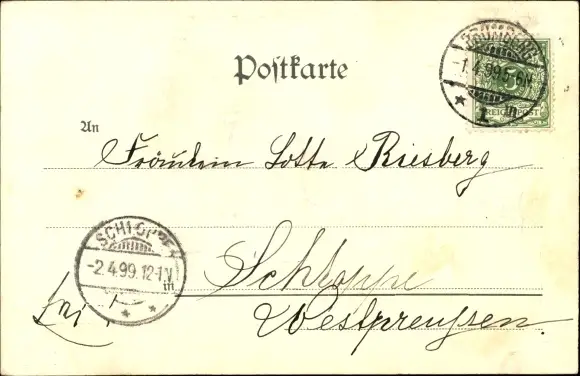 Postkarte
BROMBERG
-1.4.99.5-6N
1 m
5
REICHSPOST
An
Fräulein Lotte Riesberg
SCHLOPPE
-2.4.99.12-1N
m
Schloppe
Westpreußen.